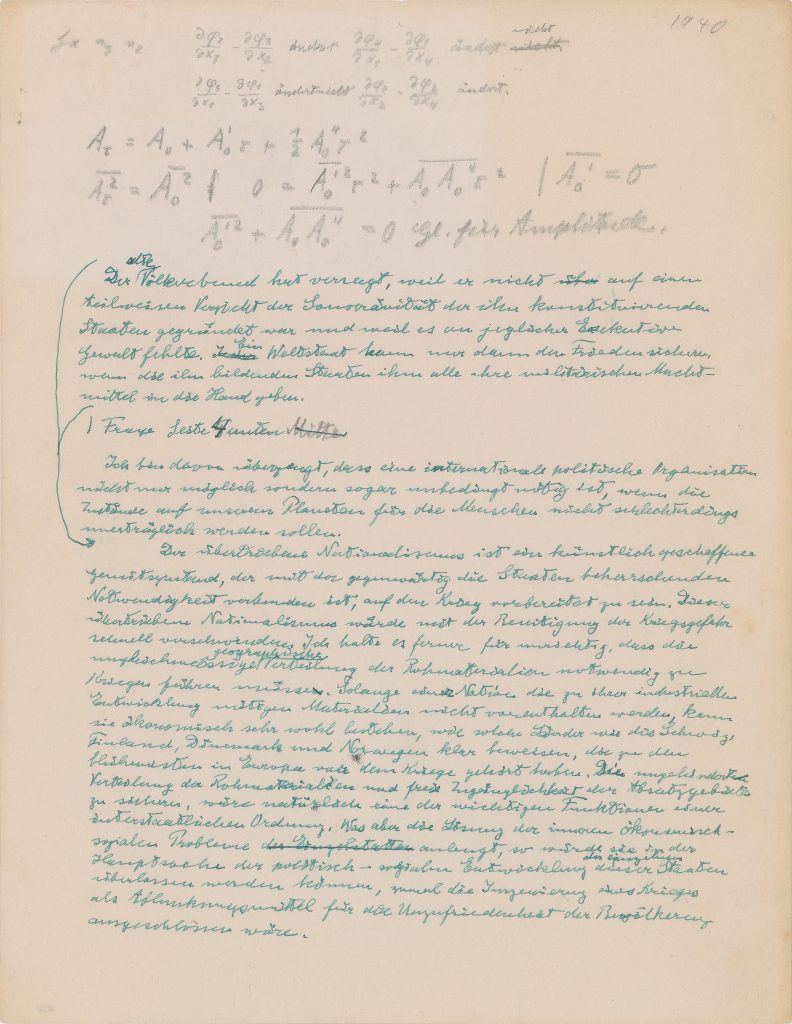 1940
∂φ₂/∂x₃ - ∂φ₃/∂x₂ ändert ∂φ₄/∂x₁ - ∂φ₁/∂x₄ ändert nicht
∂φ₃/∂x₁ - ∂φ₁/∂x₃ ändert nicht ∂φ₄/∂x₂ - ∂φ₂/∂x₄ ändert.
A_r = A_0 + A_0' r + 1/2 A_0'' r²
A_r² = A_0² | 0 = A_0'² r² + A_0 A_0'' r² | A_0' = 0
A_0'² + A_0 A_0'' = 0 Gl. für Amplitude.
Der alte Völkerbund hat versagt, weil er nicht auf einem
teilweisen Verzicht der Souveränität der ihn konstituierenden
Staaten gegründet war und weil es an jeglicher Exekutive
Gewalt fehlte. Ein Weltstaat kann nur dann den Frieden sichern,
wenn die ihn bildenden Staaten ihm alle ihre militärischen Macht-
mittel in die Hand geben.
| Frage Seite 4 unten Mitte
Ich bin davon überzeugt, dass eine internationale politische Organisation
nicht nur möglich sondern sogar unbedingt nötig ist, wenn die
Zustände auf unserem Planeten für die Menschen nicht schlechterdings
unerträglich werden sollen.
Der übertriebene Nationalismus ist ein künstlich geschaffener
Gemütszustand, der mit der gegenwärtig die Staaten beherrschenden
Notwendigkeit verbunden ist, auf den Krieg vorbereitet zu sein. Dieser
übertriebene Nationalismus würde mit der Beseitigung der Kriegsgefahr
schnell verschwinden. Ich halte es ferner für unrichtig, dass die
ungleichmässige geographische Verteilung der Rohmaterialien notwendig zu
Kriegen führen müsse. Solange einer Nation die zu ihrer industriellen
Entwicklung nötigen Materialien nicht vorenthalten werden, kann
sie ökonomisch sehr wohl bestehen, wie solche Länder wie die Schweiz,
Finland, Dänmark und Norwegen klar beweisen, die zu den
blühendsten in Europa vor dem Kriege gehört haben. Die ungehinderte
Verteilung der Rohmaterialien und freie Zugänglichkeit der Absatzgebiete
zu sichern, wäre natürlich eine der wichtigen Funktionen einer
überstaatlichen Ordnung. Was aber die Lösung der inneren ökonomisch-
sozialen Probleme der Einzelstaaten anlangt, so würde sie in der
Hauptsache der politisch-sozialen Entwicklung der einzelnen Staaten
überlassen werden können, zumal die Inszenierung eines Krieges
als Ablenkungsmittel für die Unzufriedenheit der Bevölkerung
ausgeschlossen wäre.